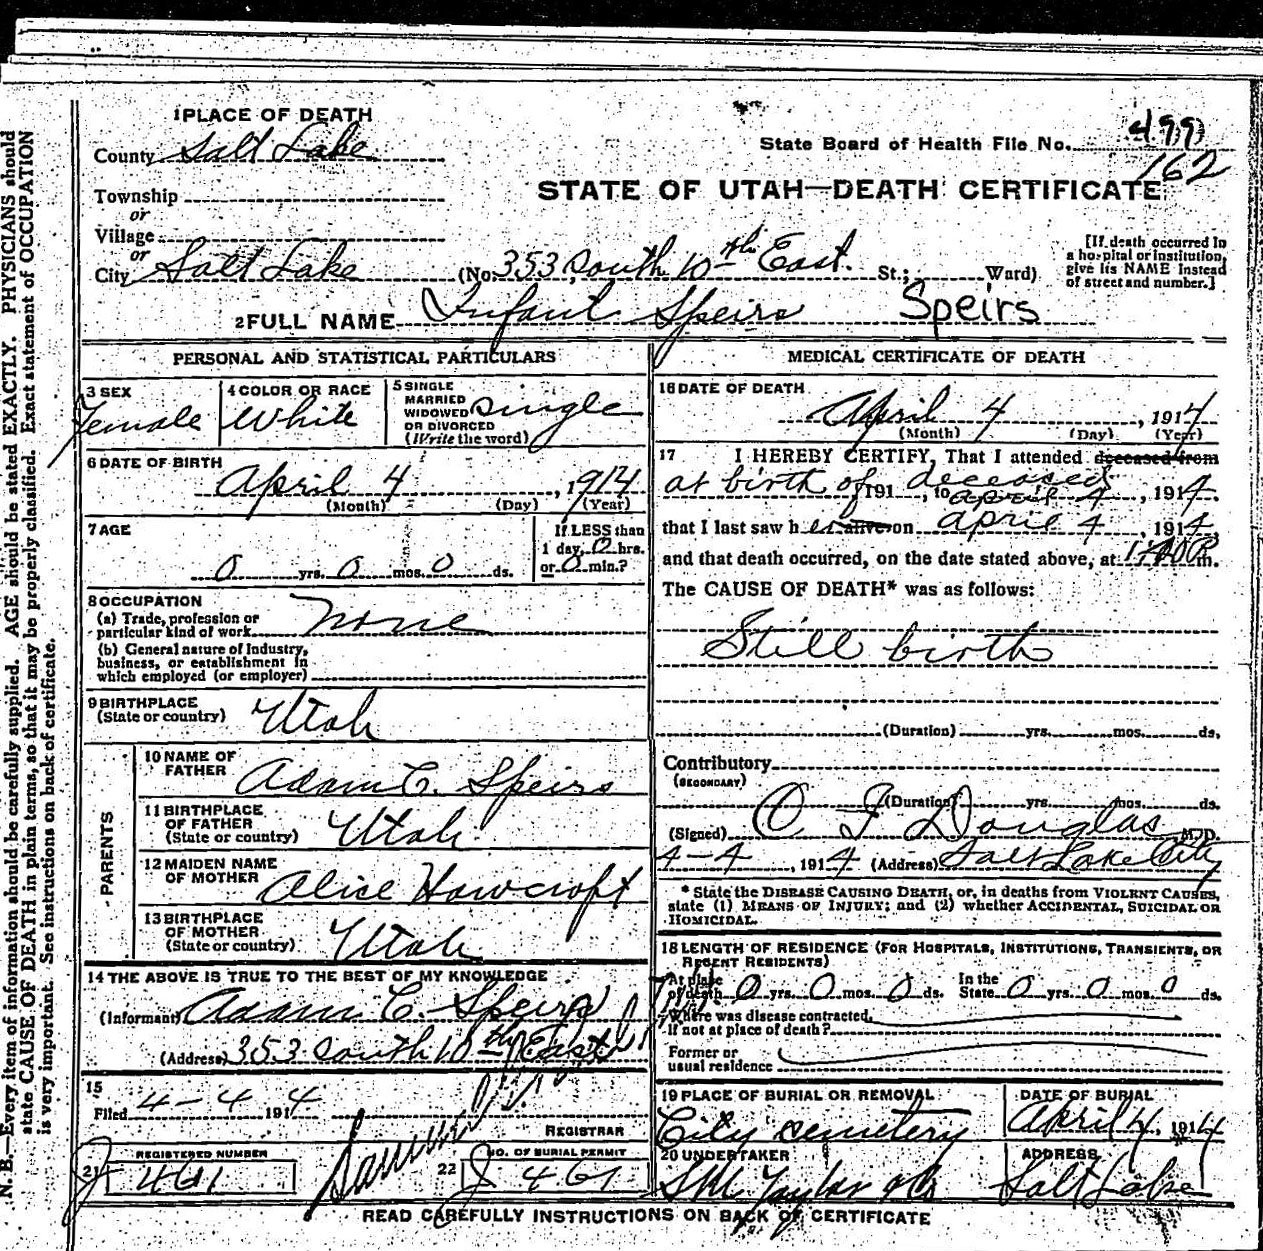 1 PLACE OF DEATH
County Salt Lake
State Board of Health File No. 499
162
Township
or
Village
or
STATE OF UTAH—DEATH CERTIFICATE
City Salt Lake (No. 353 South 10th East. St.; Ward)
[If death occurred in
a hospital or institution,
give its NAME instead
of street and number.]
2 FULL NAME Infant Speirs Speirs
PERSONAL AND STATISTICAL PARTICULARS
3 SEX
Female
4 COLOR OR RACE
White
5 SINGLE
MARRIED
WIDOWED
OR DIVORCED
(Write the word)
Single
6 DATE OF BIRTH
April 4, 1914
(Month) (Day) (Year)
7 AGE
0 yrs. 0 mos. 0 ds.
If LESS than
1 day, 0 hrs.
or 0 min.?
8 OCCUPATION
(a) Trade, profession or
particular kind of work None
(b) General nature of Industry,
business, or establishment in
which employed (or employer)
9 BIRTHPLACE
(State or country) Utah
PARENTS
10 NAME OF
FATHER Adam C. Speirs
11 BIRTHPLACE
OF FATHER
(State or country) Utah
12 MAIDEN NAME
OF MOTHER Alice Howcroft
13 BIRTHPLACE
OF MOTHER
(State or country) Utah
14 THE ABOVE IS TRUE TO THE BEST OF MY KNOWLEDGE
(Informant) Adam C. Speirs
(Address) 353 South 10th East
15
Filed 4-4 1914
REGISTRAR
21 REGISTERED NUMBER
461
22 NO. OF BURIAL PERMIT
461
MEDICAL CERTIFICATE OF DEATH
16 DATE OF DEATH
April 4, 1914
(Month) (Day) (Year)
17 I HEREBY CERTIFY, That I attended deceased from
at birth of deceased
191 , to April 4, 1914.
that I last saw her alive on April 4, 1914
and that death occurred, on the date stated above, at m.
The CAUSE OF DEATH* was as follows:
Still birth
(Duration) yrs. mos. ds.
Contributory
(SECONDARY)
(Duration) yrs. mos. ds.
(Signed) Douglas M.D.
4-4, 1914 (Address) Salt Lake City
* State the DISEASE CAUSING DEATH, or, in deaths from VIOLENT CAUSES,
state (1) MEANS OF INJURY; and (2) whether ACCIDENTAL, SUICIDAL OR
HOMICIDAL.
18 LENGTH OF RESIDENCE (FOR HOSPITALS, INSTITUTIONS, TRANSIENTS, OR
RECENT RESIDENTS)
At place
of death 0 yrs. 0 mos. 0 ds.
In the
State 0 yrs. 0 mos. 0 ds.
Where was disease contracted,
if not at place of death?
Former or
usual residence
19 PLACE OF BURIAL OR REMOVAL
City Cemetery
DATE OF BURIAL
April 4, 1914
20 UNDERTAKER
Taylor
ADDRESS
Salt Lake
READ CAREFULLY INSTRUCTIONS ON BACK OF CERTIFICATE
N. B. Every item of information should be carefully supplied. AGE should be stated EXACTLY. PHYSICIANS should
state CAUSE OF DEATH in plain terms, so that it may be properly classified. Exact statement of OCCUPATION
is very important. See instructions on back of certificate.